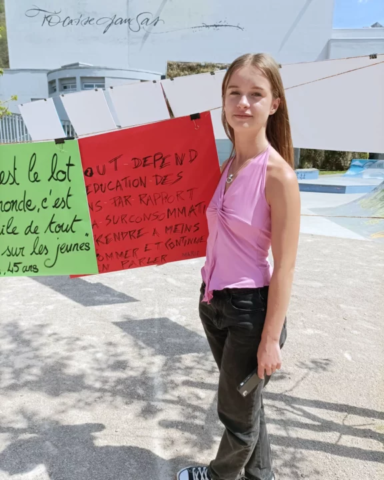 est le lot
monde, c'est
ile de tout
sur les jeunes."
, 45 ans
OUT DEPEND
EDUCATION DES
NS PAR RAPPORT
A SURCONSOMMATI
RENDRE A MEINS
OMMER ET CONTINUE
N PARLER